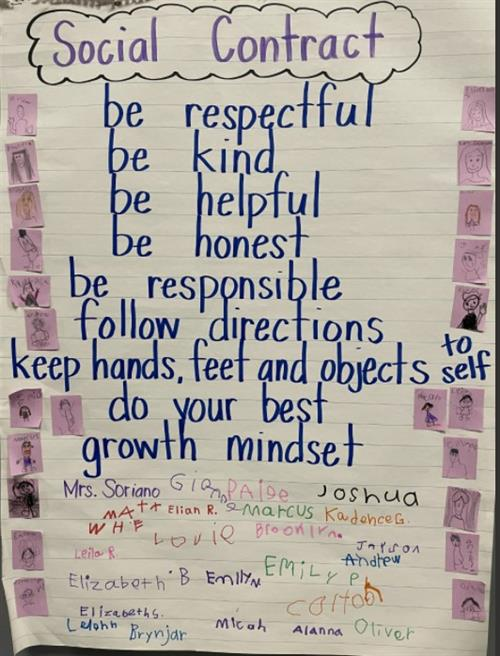 Social Contract
be respectful
be kind
be helpful
be honest
be responsible
follow directions
keep hands, feet and objects to self
do your best
growth mindset
Mrs. Soriano Giana PAIGE Joshua
MATT Elian R. MARCUS Kadence G.
LOUIE Brooklyn
Leila R. Jayson
Andrew
Elizabeth B Emilyn EMILY P
Colton
Elizabeth S.
Brynjar Micah Alanna Oliver